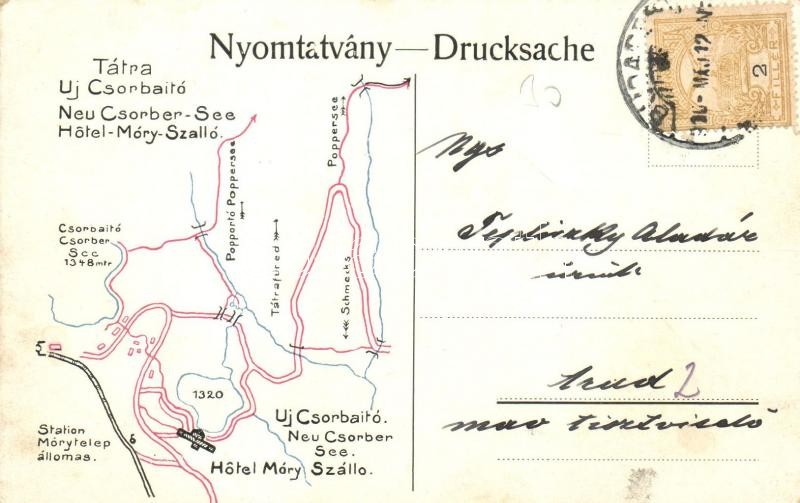 Nyomtatvány — Drucksache
Tátra
Uj Csorbaitó
Neu Csorber-See
Hôtel-Móry-Szalló.
Poppersee
Poppertó Poppersee
Csorbaitó
Csorber
See
1348 mtr.
Tátrafüred
Schmecks
1320
5
6
Station
Mórytelep
állomas.
Uj Csorbaitó.
Neu Csorber
See.
Hôtel Móry Szállo.
2
FILLÉR
Ngs
Aladár
úrnak
Arad 2
mav tisztviselő